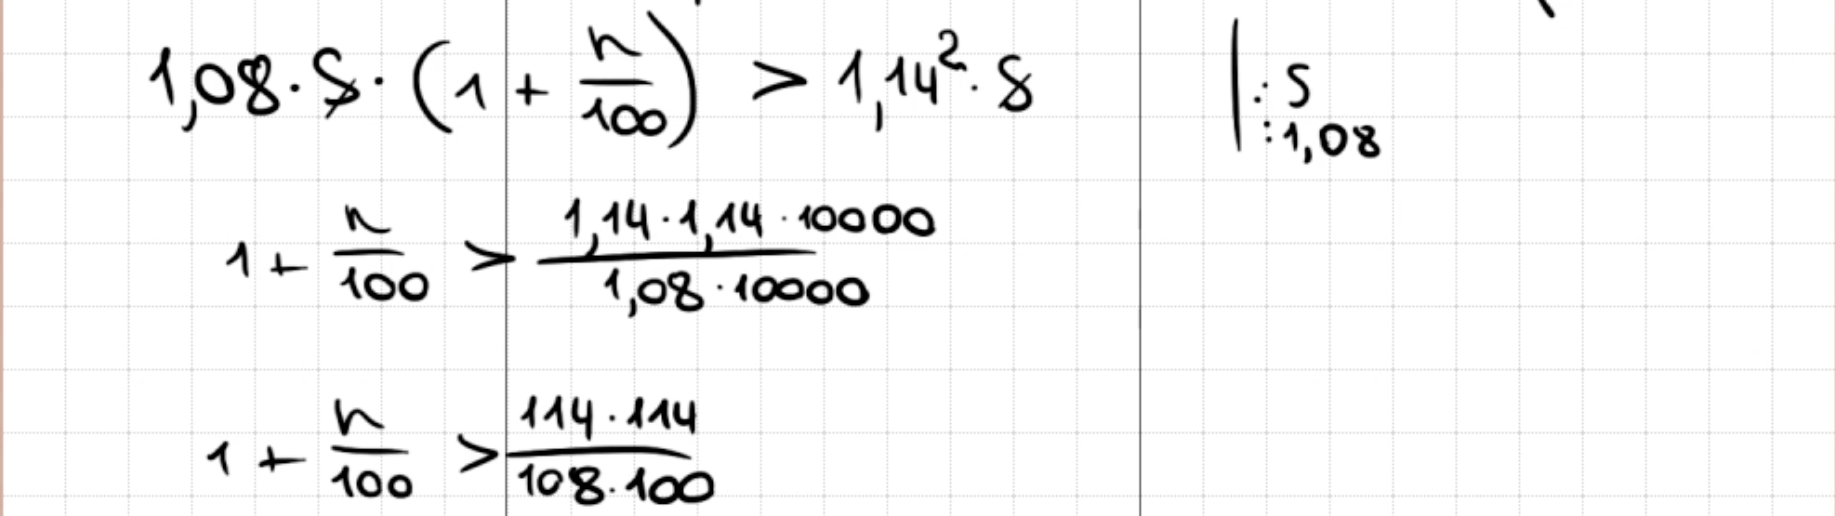 1,08 · S · (1 + n/100) > 1,14² · S | : S
: 1,08
1 + n/100 > (1,14 · 1,14 · 10000)/(1,08 · 10000)
1 + n/100 > (114 · 114)/(108 · 100)